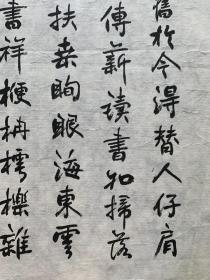 於今得替人仔肩
傳薪讀書知掃落
扶桑眴眼海東雲
書祥梗柟樗櫟雜